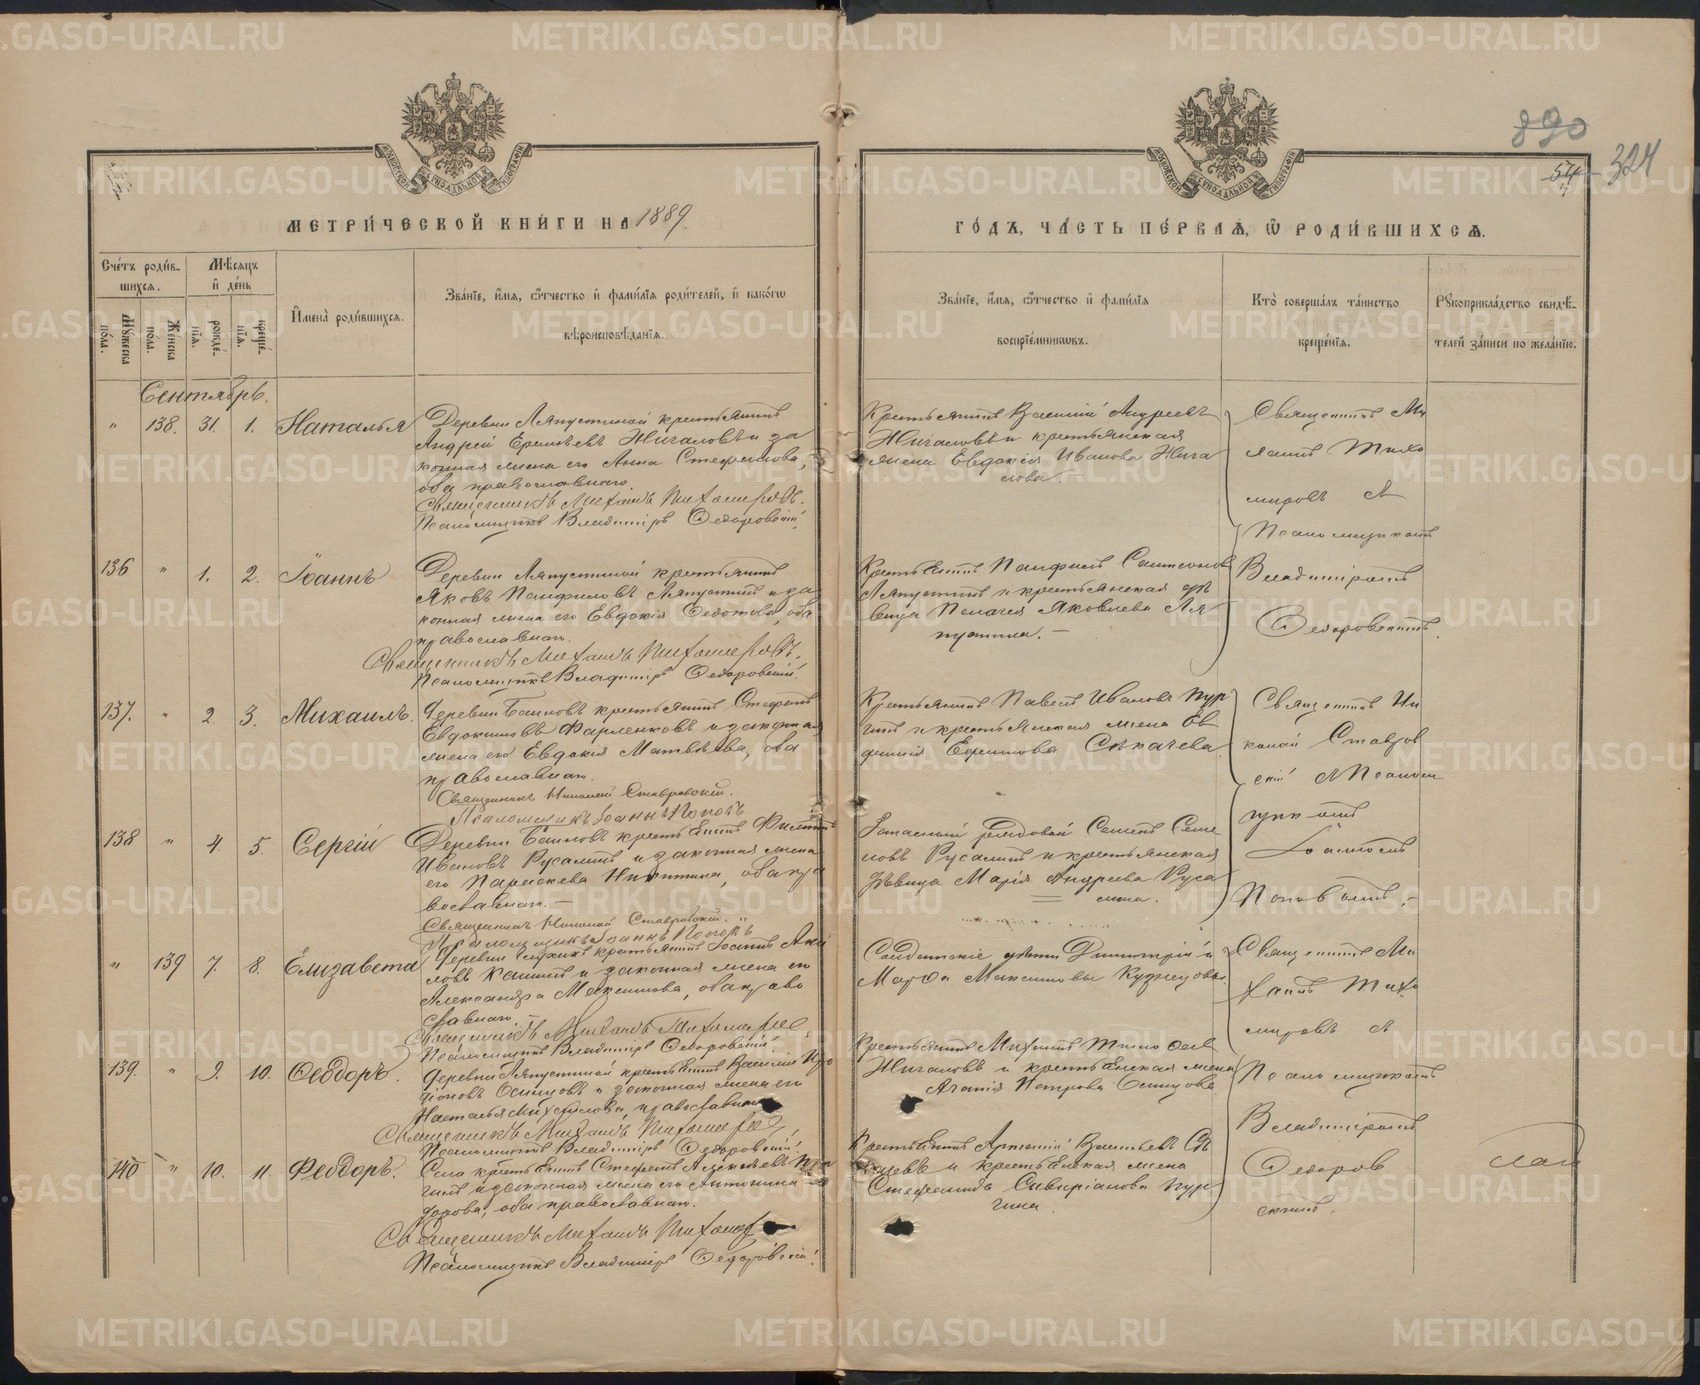 890
54
324
МОСКОВСКОЙ СѴНОДАЛЬНОЙ ТИПОГРАФІИ
МОСКОВСКОЙ СѴНОДАЛЬНОЙ ТИПОГРАФІИ
МЕТРИ́ЧЕСКОЙ КНИ́ГИ НА 1889.
ГО́ДЪ, ЧА́СТЬ ПЕ́РВАЯ, Ѡ РОДИ́ВШИХСЯ.
Сче́тъ роди́в-
шихся.
Му́жеска по́ла.
Же́нска по́ла.
Мѣ́сяцъ
и҆ де́нь
рожде́-нїя.
креще́-нїя.
И҆мена̀ роди́вшихся.
Зва́нїе, и҆́мя, ѻ҆́тчество и҆ фами́лїя роди́телей, и҆ како́гѡ
вѣроисповѣ́данїя.
Зва́нїе, и҆́мя, ѻ҆́тчество и҆ фами́лїя
воспрїе́мникѡвъ.
Кто̀ соверша́лъ та́инство
креще́нїя.
Рꙋкоприкла́дство свидѣ́-
телей за́писи по жела́нїю.
Сентябрь.
" 138. 31. 1. Наталья
Деревни Ляпустиной крестьянинъ
Андрей Еремѣевъ Жигаловъ и за
конная жена его Анна Стефанова,
оба православнаго.
Священникъ Михаилъ Тихомировъ.
Псаломщикъ Владиміръ Ѳедоровскій.
Крестьянинъ Василій Андреевъ
Жигаловъ и крестьянская
жена Евдокія Иванова Жига
лова.
Священникъ Ми
хаилъ Тихо
мировъ съ
Псаломщикомъ
Владиміромъ
Ѳедоровскимъ.
136 " 1. 2. Іоаннъ
Деревни Ляпустиной крестьянинъ
Яковъ Панфиловъ Ляпустинъ и за
конная жена его Евдокія Ѳедотова, оба
православнаго.
Священникъ Михаилъ Тихомировъ.
Псаломщикъ Владиміръ Ѳедоровскій.
Крестьянинъ Панфилъ Самсоновъ
Ляпустинъ и крестьянская дѣ
вица Пелагея Яковлева Ля
пустина.
137. " 2. 3. Михаилъ.
Деревни Баиновъ крестьянинъ Стефанъ
Евдокимовъ Фарленковъ и законная
жена его Евдокія Матвѣева, оба
православнаго.
Священникъ Николай Ставровскій.
Псаломщикъ Іоаннъ Поповъ
Крестьянинъ Павелъ Ивановъ Пур
гинъ и крестьянская жена Ев
Ефимова Секачева
Священникъ Ни
колай Ставров
скій съ Псалом
щикомъ
Іоанномъ
Поповымъ.
138 " 4. 5. Сергій
Деревни Баиновъ крестьянинъ Филиппъ
Ивановъ Русалинъ и законная жена
его Параскева Никитина, оба пра
вославнаго.
Священникъ Николай Ставровскій.
Псаломщикъ Іоаннъ Поповъ
Запасный рядовой Семенъ Семе
новъ Русалинъ и крестьянская
дѣвица Марія Андреева Руса
лина.
" 139 7. 8. Елизавета
крестьянинъ Іоаннъ Аки
ловъ и законная жена его
Александра Максимова, оба право
славнаго.
Священникъ Михаилъ Тихомировъ
Псаломщикъ Владиміръ Ѳедоровскій
Солдатскіе дѣти Димитрій и
Марѳа Максимовы Кузнецовы.
Священникъ Ми
хаилъ Тихо
мировъ съ
Псаломщикомъ
Владиміромъ
Ѳедоров
скимъ.
139. " 9. 10. Ѳеодоръ.
Деревни Ляпустиной крестьянинъ Василій
Осинцовъ и законная жена его
Наталья Михайлова, православнаго
Священникъ Михаилъ Тихомировъ
Псаломщикъ Владиміръ Ѳедоровскій.
Крестьянинъ Михаилъ Тимоѳеев
Жигаловъ и крестьянская жена
Агапія Петрова Осинцова.
140 " 10. 11. Ѳеодоръ.
Села крестьянинъ Стефанъ Алексѣевъ Пур
гинъ и законная жена его Антонина
дорова, оба православнаго.
Священникъ Михаилъ Тихомировъ
Псаломщикъ Владиміръ Ѳедоровскій.
Крестьянинъ Артемій Васильевъ
и крестьянская жена
Стефанида Сивиріанова Пур
гина.